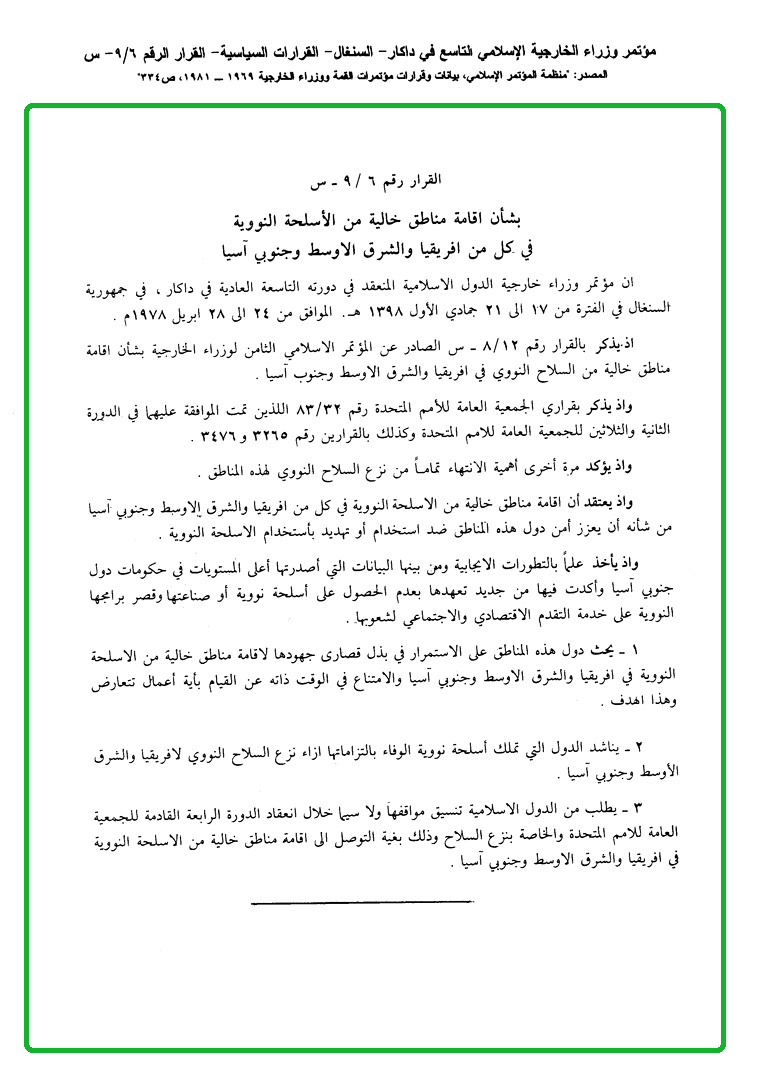 مؤتمر وزراء الخارجية الإسلامي التاسع في داكار- السنغال- القرارات السياسية- القرار الرقم ٩/٦- س
المصدر: "منظمة المؤتمر الإسلامي، بيانات وقرارات مؤتمرات القمة ووزراء الخارجية ١٩٦٩ ــ ١٩٨١، ص٣٣٤"
القرار رقم ٦ / ٩ - س
بشأن اقامة مناطق خالية من الأسلحة النووية
في كل من افريقيا والشرق الاوسط وجنوبي آسيا
ان مؤتمر وزراء خارجية الدول الاسلامية المنعقد في دورته التاسعة العادية في داكار ، في جمهورية
السنغال في الفترة من ١٧ الى ٢١ جمادي الأول ١٣٩٨ هـ. الموافق من ٢٤ الى ٢٨ ابريل ١٩٧٨م .
اذ يذكر بالقرار رقم ٨/١٢ - س الصادر عن المؤتمر الاسلامي الثامن لوزراء الخارجية بشأن اقامة
مناطق خالية من السلاح النووي في افريقيا والشرق الاوسط وجنوب آسيا .
واذ يذكر بقراري الجمعية العامة للأمم المتحدة رقم ٨٣/٣٢ اللذين تمت الموافقة عليهما في الدورة
الثانية والثلاثين للجمعية العامة للامم المتحدة وكذلك بالقرارين رقم ٣٢٦٥ و ٣٤٧٦ .
واذ يؤكد مرة أخرى أهمية الانتهاء تماماً من نزع السلاح النووي لهذه المناطق .
واذ يعتقد أن اقامة مناطق خالية من الاسلحة النووية في كل من افريقيا والشرق الاوسط وجنوبي آسيا
من شأنه أن يعزز أمن دول هذه المناطق ضد استخدام أو تهديد بأستخدام الاسلحة النووية .
واذ يأخذ علماً بالتطورات الايجابية ومن بينها البيانات التي أصدرتها أعلى المستويات في حكومات دول
جنوبي آسيا وأكدت فيها من جديد تعهدها بعدم الحصول على أسلحة نووية أو صناعتها وقصر برامجها
النووية على خدمة التقدم الاقتصادي والاجتماعي لشعوبها .
١ - يحث دول هذه المناطق على الاستمرار في بذل قصارى جهودها لاقامة مناطق خالية من الاسلحة
النووية في افريقيا والشرق الاوسط وجنوبي آسيا والامتناع في الوقت ذاته عن القيام بأية أعمال تتعارض
وهذا الهدف .
٢ - يناشد الدول التي تملك أسلحة نووية الوفاء بالتزاماتها ازاء نزع السلاح النووي لافريقيا والشرق
الأوسط وجنوبي آسيا .
٣ - يطلب من الدول الاسلامية تنسيق مواقفها ولا سيما خلال انعقاد الدورة الرابعة القادمة للجمعية
العامة للامم المتحدة والخاصة بنزع السلاح وذلك بغية التوصل الى اقامة مناطق خالية من الاسلحة النووية
في افريقيا والشرق الاوسط وجنوبي آسيا .